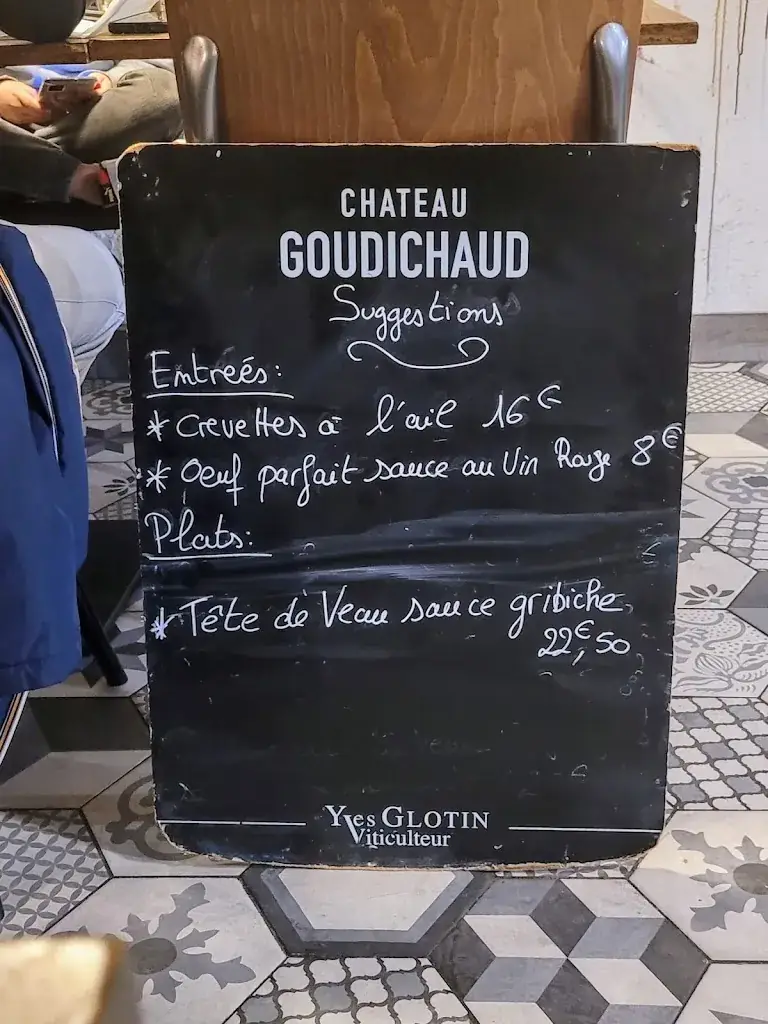 CHATEAU
GOUDICHAUD
Suggestions
Entreés:
* Crevettes à l'ail 16€
* Oeuf parfait sauce au Vin Rouge 8€
Plats:
* Tête de Veau sauce gribiche
22€,50
Yves GLOTIN
Viticulteur